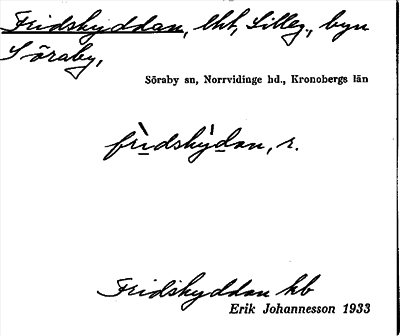 Fridskyddan, lht, Lilleg., byn
Söraby,
Söraby sn, Norrvidinge hd., Kronobergs län
frìdskỳdan, r.
Fridskyddan kb
Erik Johannesson 1933